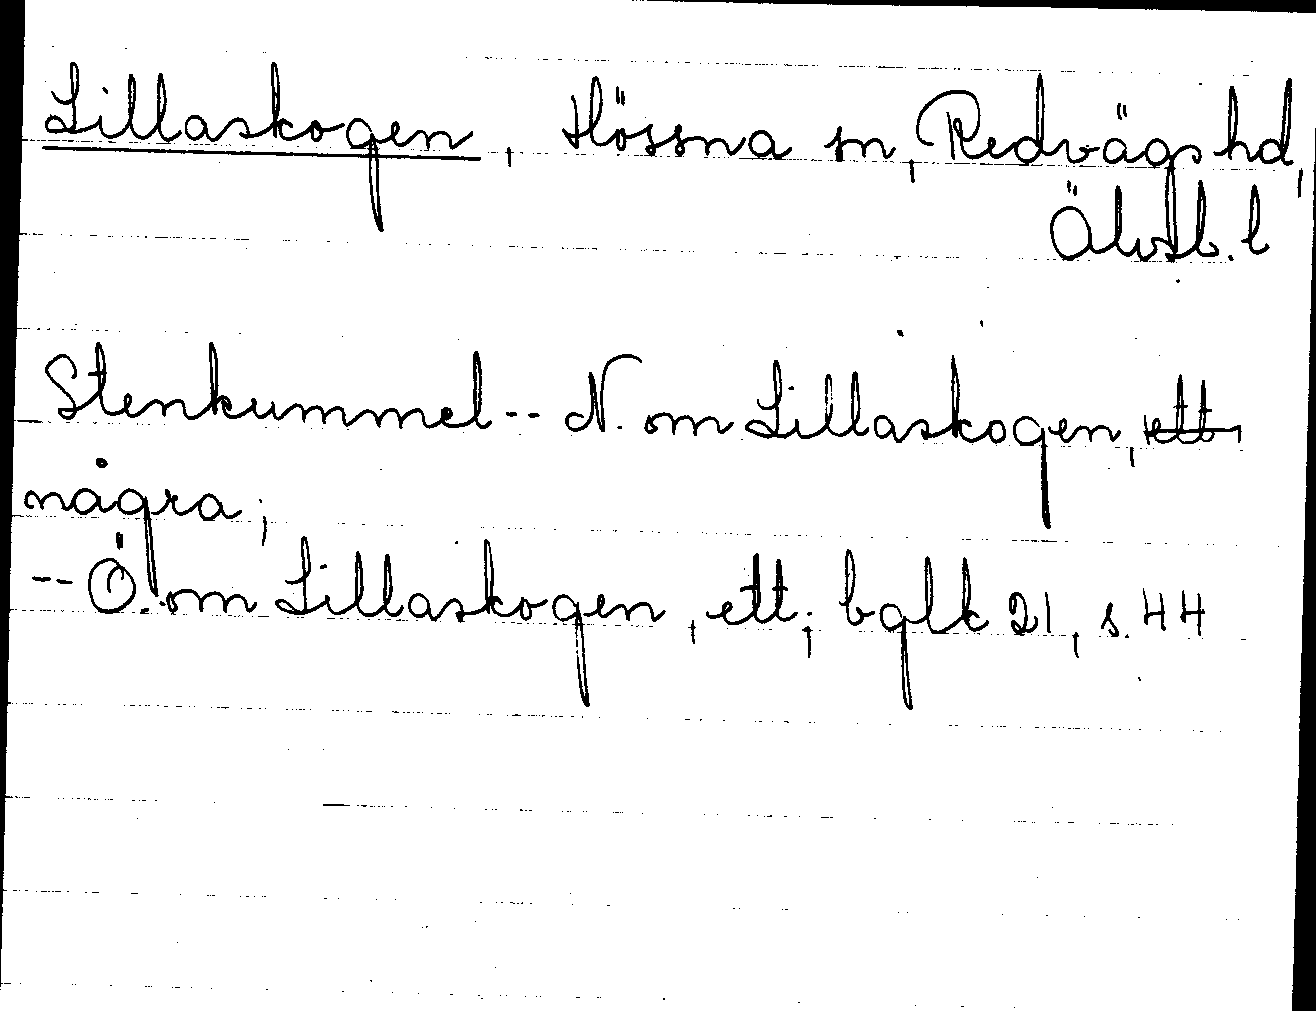 Lillaskogen, Hössna sn, Redvägs hd,
Älvsb. l
Stenkummel -- N. om Lillaskogen, ett
några;
-- Ö. om Lillaskogen, ett; bglk 21, s. 44